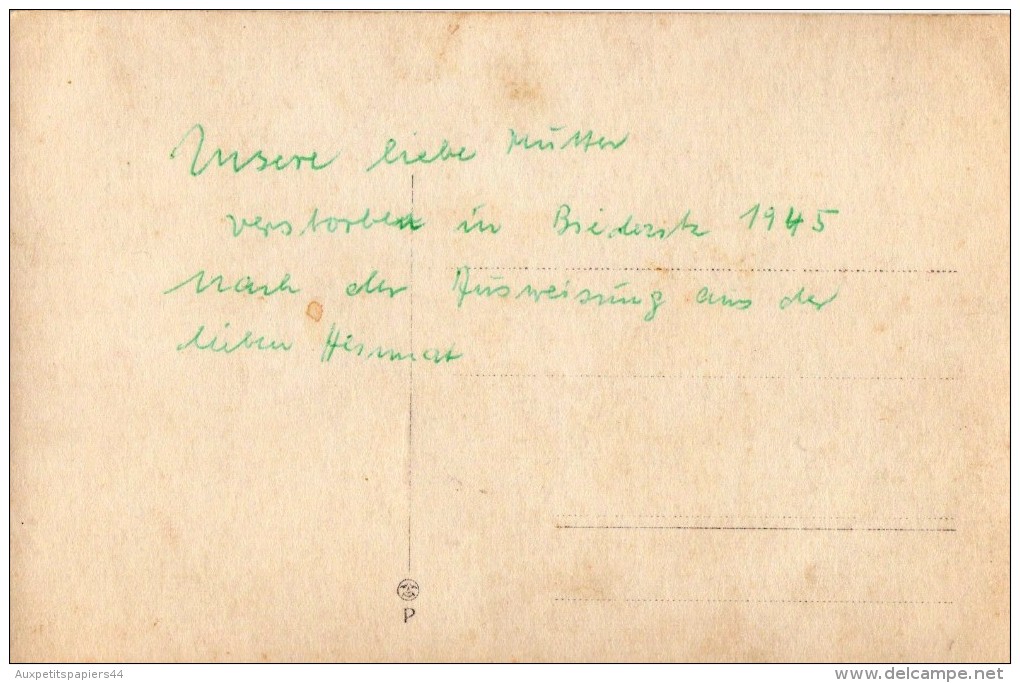 Unsere liebe Mutter
verstorben in Biederitz 1945
nach der Ausweisung aus der
lieben Heimat
P
Auxpetitspapiers44
www.delcampe.net